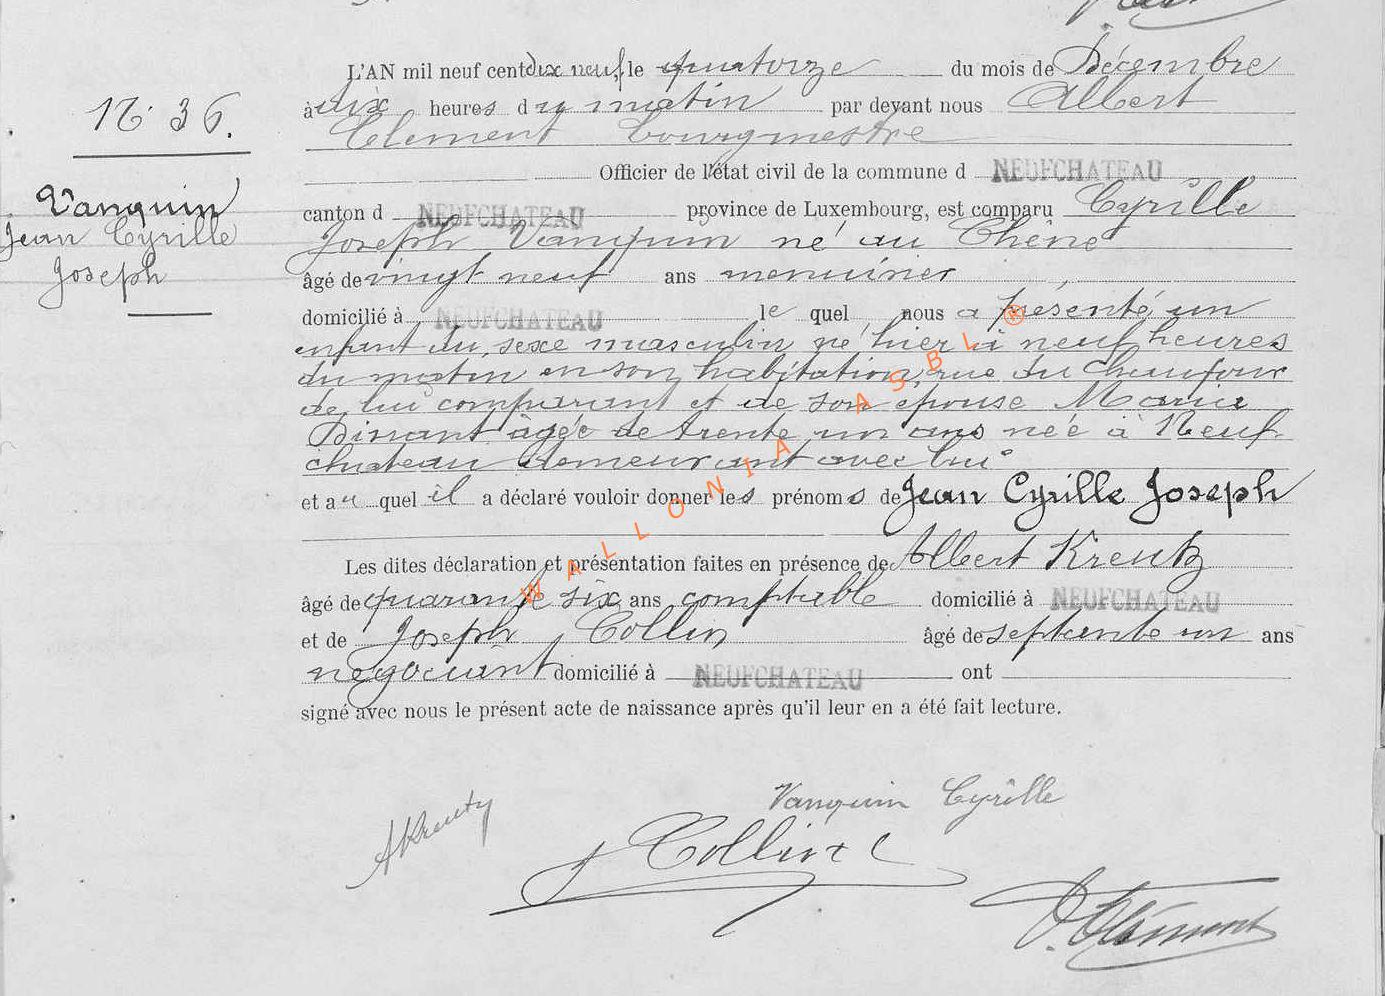 L'AN mil neuf cent dix neuf, le quatorze du mois de Décembre
N° 36.
à dix heures du matin par devant nous Albert
Clément bourgmestre
Officier de l'état civil de la commune d NEUFCHATEAU
Vanquin
Jean Cyrille
Joseph
canton d NEUFCHATEAU province de Luxembourg, est comparu Cyrille
Joseph Vanquin né au Chêne
âgé de vingt neuf ans menuisier
domicilié à NEUFCHATEAU le quel nous a présenté un
enfant du sexe masculin né hier à neuf heures
du matin en son habitation, rue du Chaufour
de lui comparant et de son épouse Maria
Dinant âgée de trente un ans née à Neuf
chateau demeurant avec lui
et au quel il a déclaré vouloir donner les prénoms de Jean Cyrille Joseph
Les dites déclaration et présentation faites en présence de Albert Kreutz
âgé de quarante six ans comptable domicilié à NEUFCHATEAU
et de Joseph Collin âgé de septante un ans
négociant domicilié à NEUFCHATEAU ont
signé avec nous le présent acte de naissance après qu'il leur en a été fait lecture.
Vanquin Cyrille
AKreutz
J Collin
Clément
WALLONIA ASBL ®